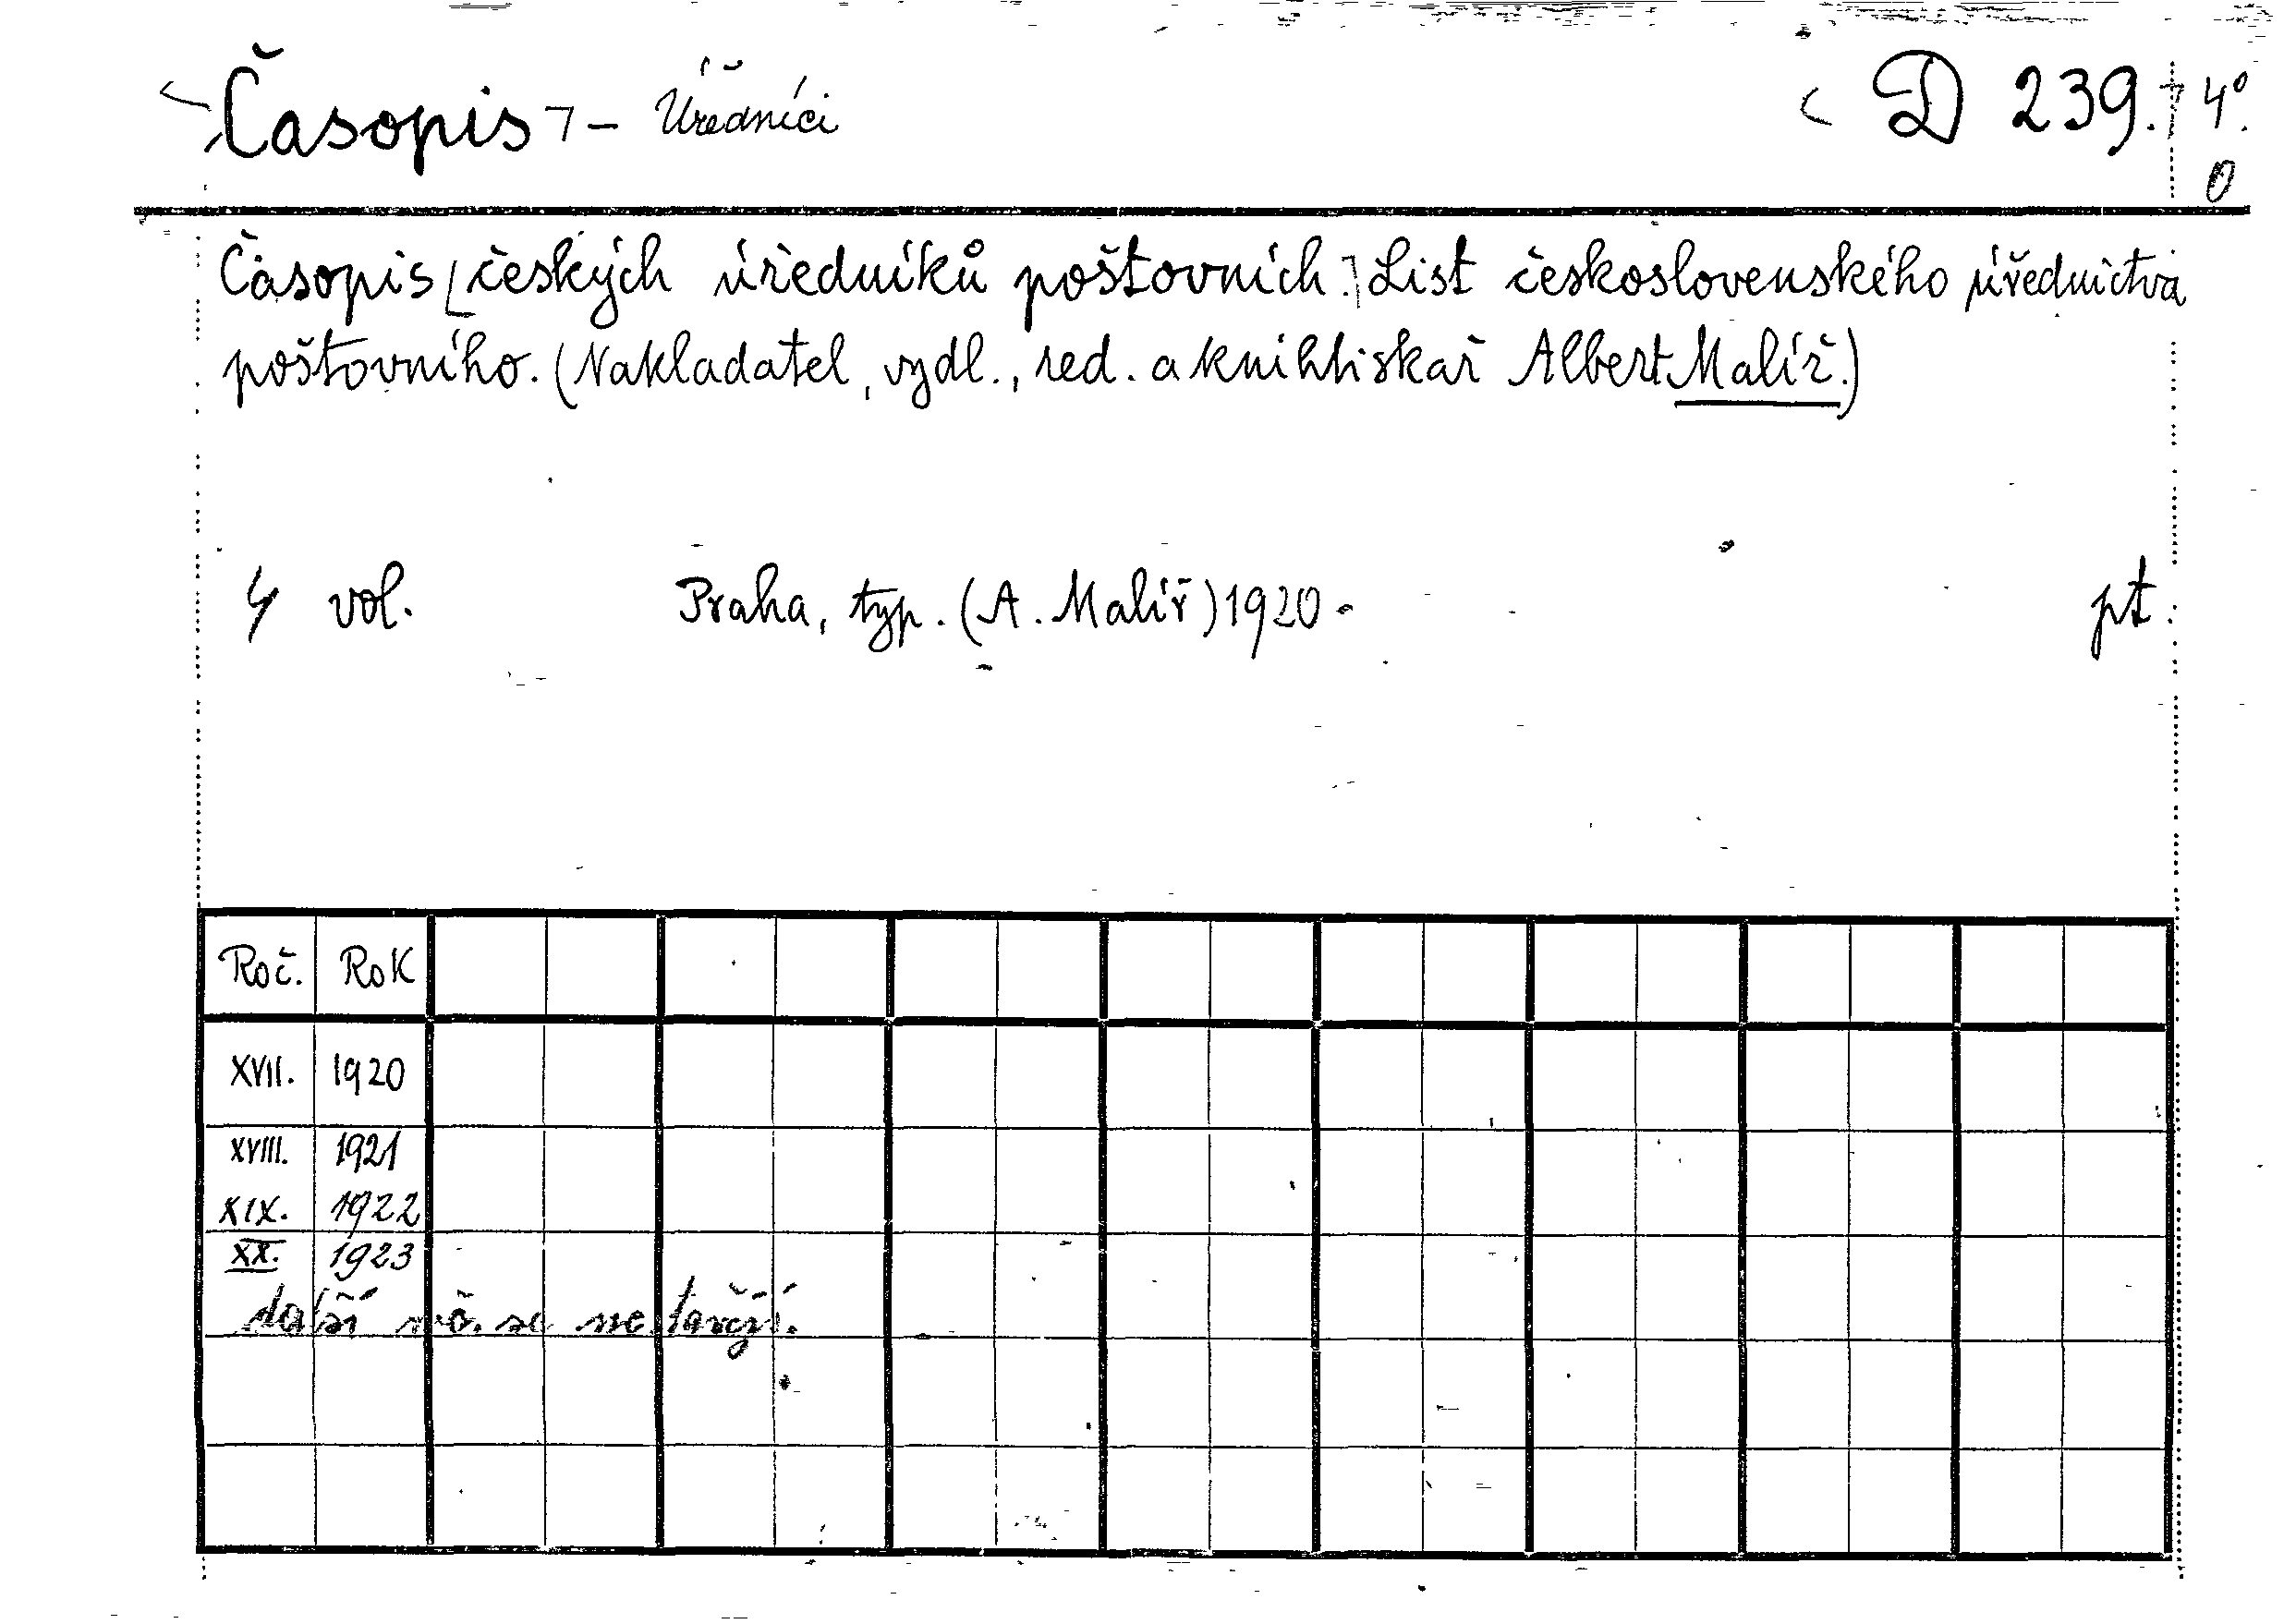 Časopis ⁊ – Úředníci D 239. 4°.
0
Časopis [českých úředníků poštovních.] List československého úřednictva
poštovního. (Nakladatel, vydl., red. a knihtiskař Albert Malíř.)
4 vol. Praha, typ. (A. Malíř) 1920- pt.
Roč. Rok
XVII. 1920
XVIII. 1921
XIX. 1922
XX. 1923
další roč. se ne